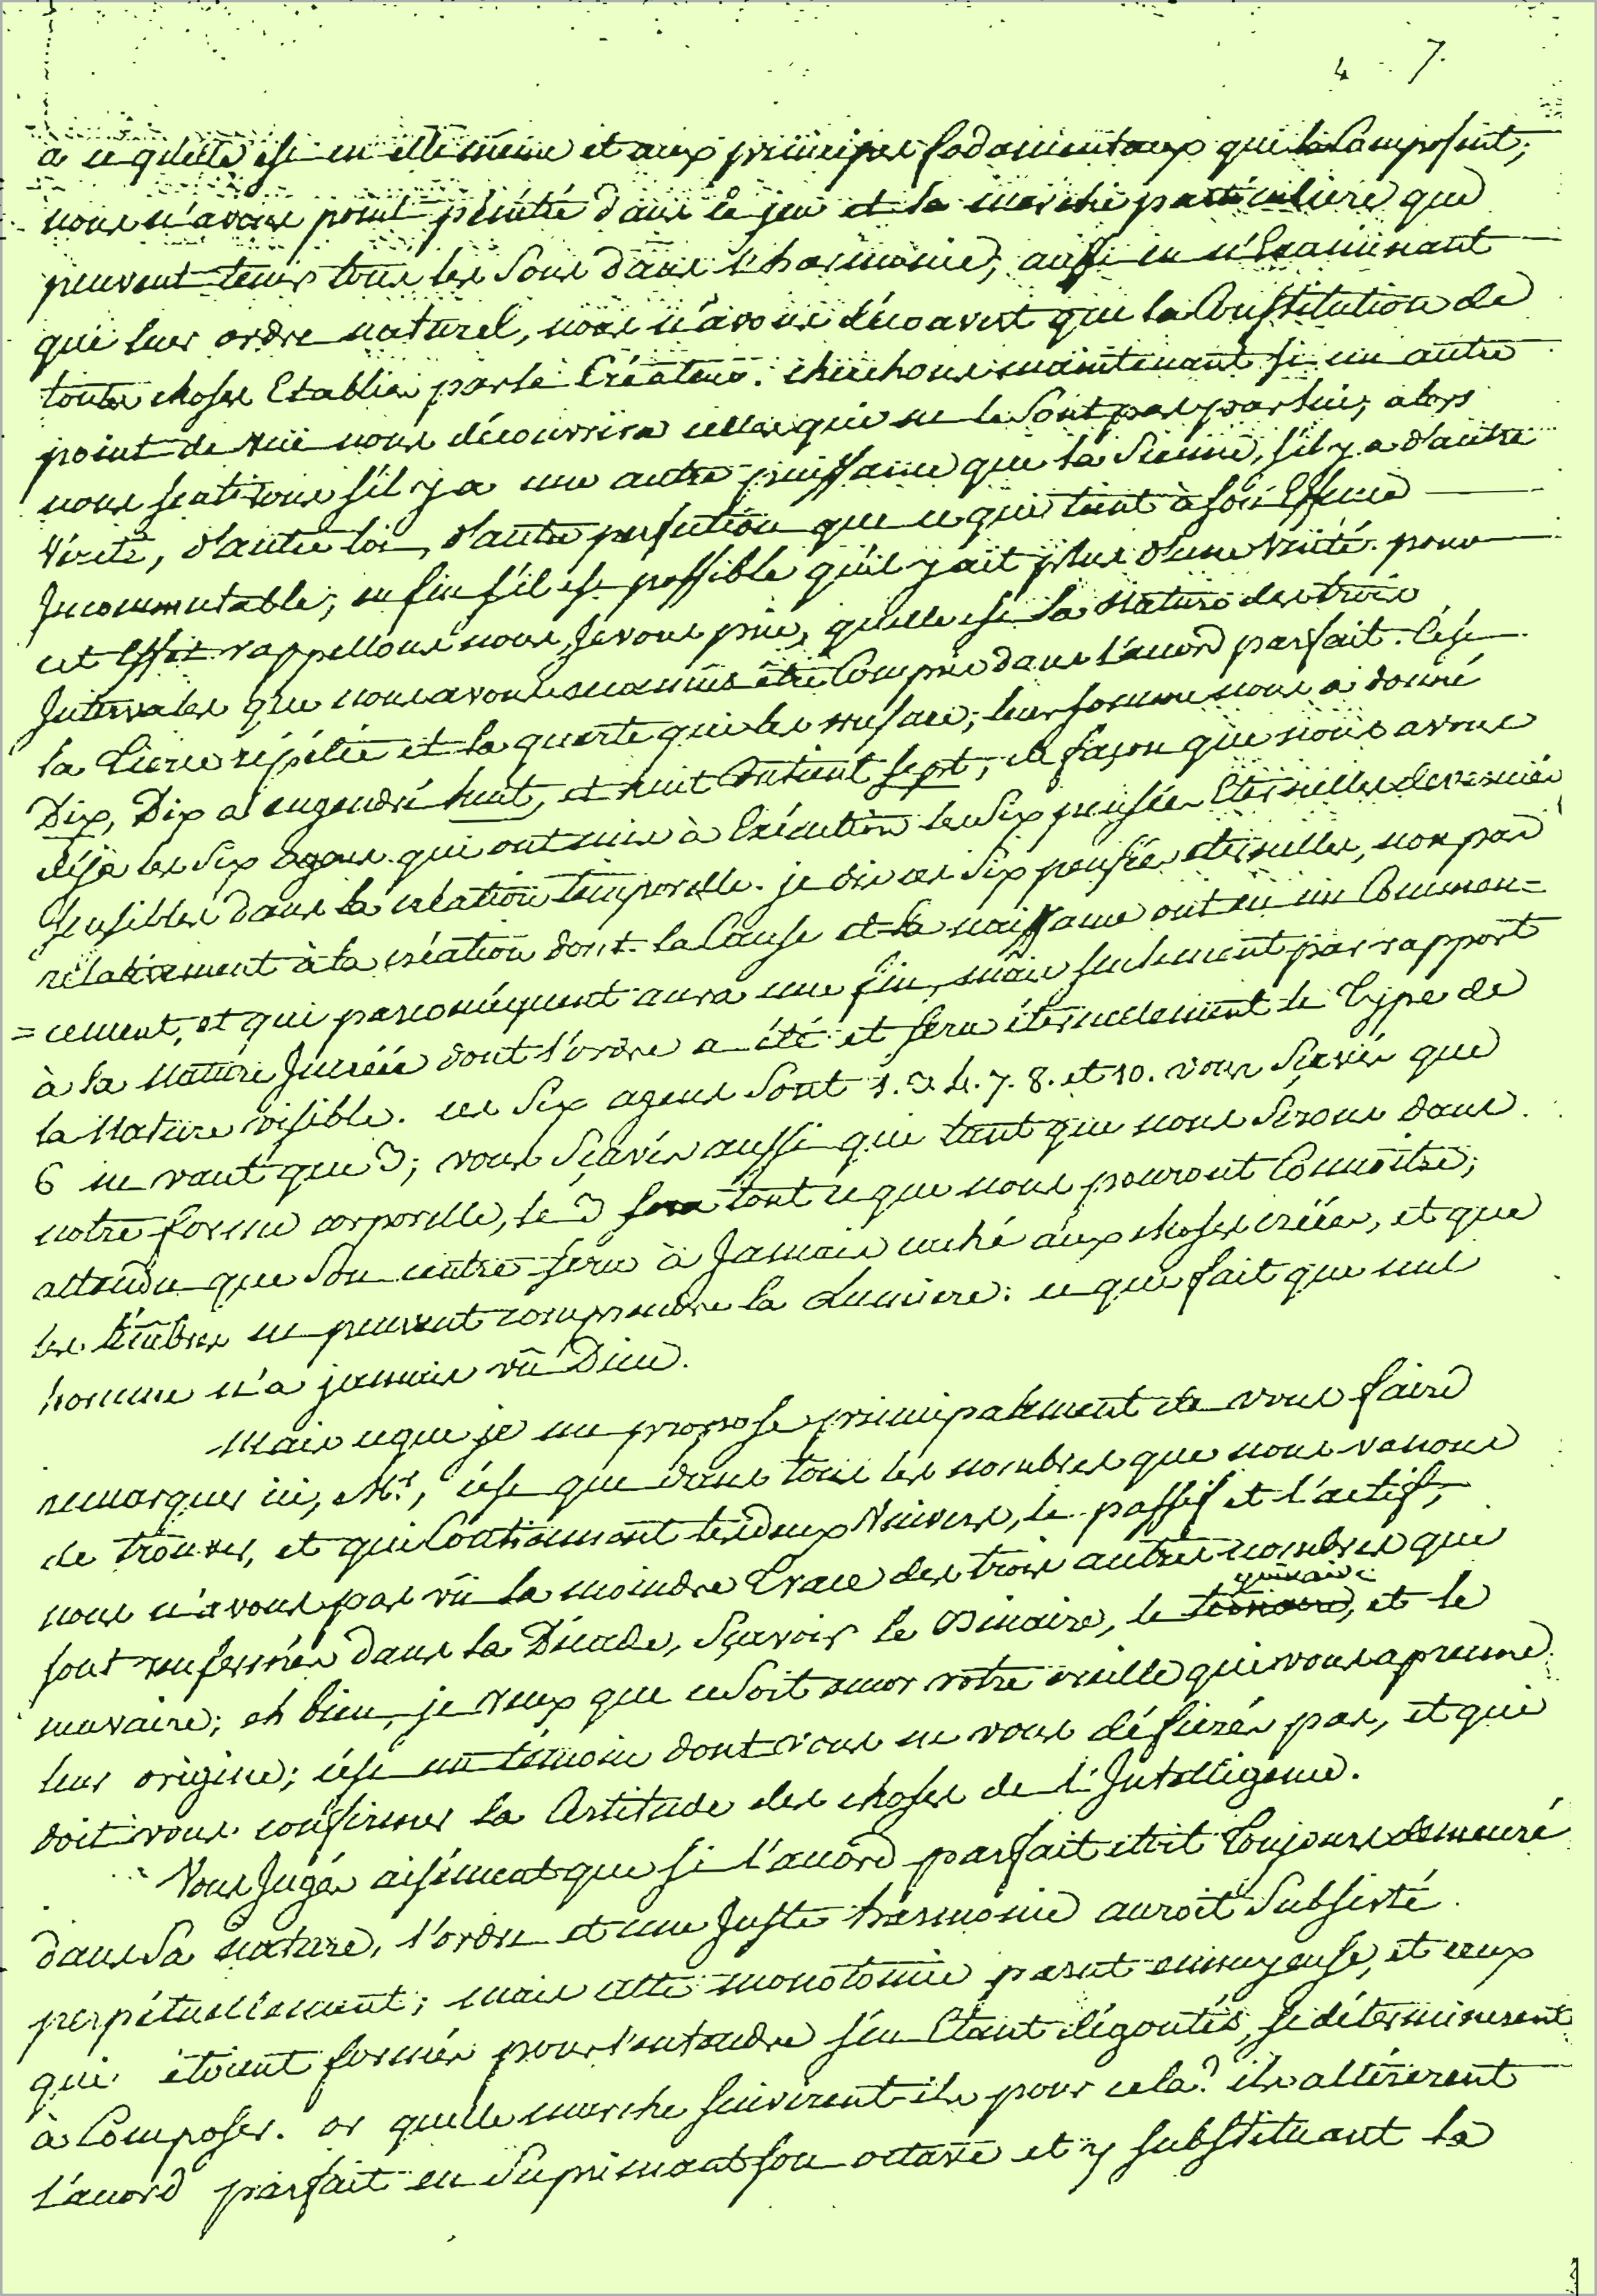 4 7.
à ce qu'elle est en elle même et aux principes fodamentaux qui la Composent;
nous n'avons point pénétré dans le jeu et la marche particuliere que
peuvent tenir tous les Sons dans l'harmonie; aussi en n'Examinant
que leur ordre naturel, nous n'avons découvert que la Constitution de
toutes choses Etablies par le Créateur. cherchons maintenant si un autre
point de vüe nous découvrira celles qui ne le Sont pas par lui; alors
nous sentirons s'il y a une autre puissance que la Sienne, s'il y a d'autre
Vérité, d'autre loi, d'autre perfection que ce qui tient à son Essence
Incommutable; enfin s'il est possible qu'il y ait plus d'une Vérité. pour
cet Effet rappellons nous, Je vous prie, quelle est la Nature des trois
Intervales que nous avons être Compris dans l'accord parfait. C'est
la tierce répétée et la quarte qui les surpasse; leur somme nous a donné
Dix, Dix a engendré huit, et huit Contient sept; de façon que nous avons
déja les Six agens qui ont mis à Exécution les Six pensées Eternelles devenües
Sensibles dans la création temporelle. je dis ces Six pensées eternelles, non pas
rélativement à la création dont la Cause et la naissance ont eu un Commen=
=cement, et qui parconséquent aura une fin, mais seulement par rapport
à la Nature Incréée dont l'ordre a été et sera éternellement le Type de
la Nature visible. ces Six agens Sont 1. 3. 4. 7. 8. et 10. vous Sçavés que
6 ne vaut que 3; vous Sçavés aussi que tant que nous Serons dans
notre forme corporelle, le 3 sera tout ce que nous pouront Connoître;
attendu que Son centre sera à Jamais caché aux choses créées, et que
les ténèbres ne peuvent comprendre la Lumiere: ce qui fait que nul
homme n'a jamais vû Dieu.
Mais ce que je me propose principalement de vous faire
remarquer ici, Mrs, c'est que dans tous les nombres que nous venons
de trouver, et qui Contiennent les deux Univers, le passif et l'actif,
nous n'avons pas vû la moindre Trace des trois autres nombres que
sont renfermés dans la Décade, Sçavoir le Binaire, le quinaire, et le
nuvaire; eh bien, je veux que ce Soit encor votre oreille qui vous aprenne
leur origine; c'est un témoin dont vous ne vous défierés pas, et qui
doit vous confirmer la Certitude des choses de l'Intelligence.
Vous Jugés aisément que si l'accord parfait étoit Toujours demeuré
dans Sa nature, l'ordre et une Juste harmonie auroit Subsisté
perpétuellement; mais cette monotomie parut ennuyeuse, et ceux
qui étoient formés pour l'entendre s'en Etant dégoutés, se déterminerent
à Composer. or quelle marche suivirent ils pour cela? ils altérerent
l'accord parfait en Suprimant son octave et y substituant la